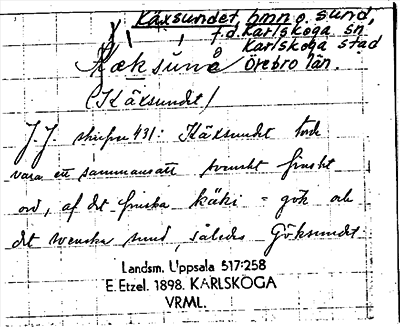 Käxsundet, hmn o. sund,
f.d. Karlskoga sn
Karlskoga stad
Örebro län.
Kæksund
(Käxsundet)
J.J. 431: Käxsundet torde
vara ett sammansatt svenskt finskt
ord, af det finska käki = gök och
det svenska sund, således Göksundet
Landsm. Uppsala 517:258
E. Etzel. 1898. KARLSKOGA
VRML.